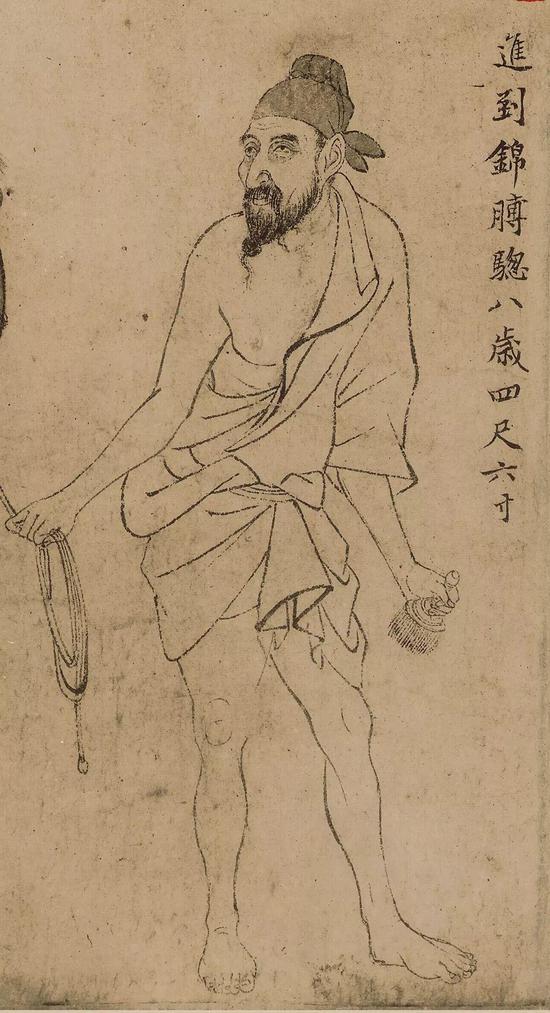 進到錦膊驄八歲四尺六寸